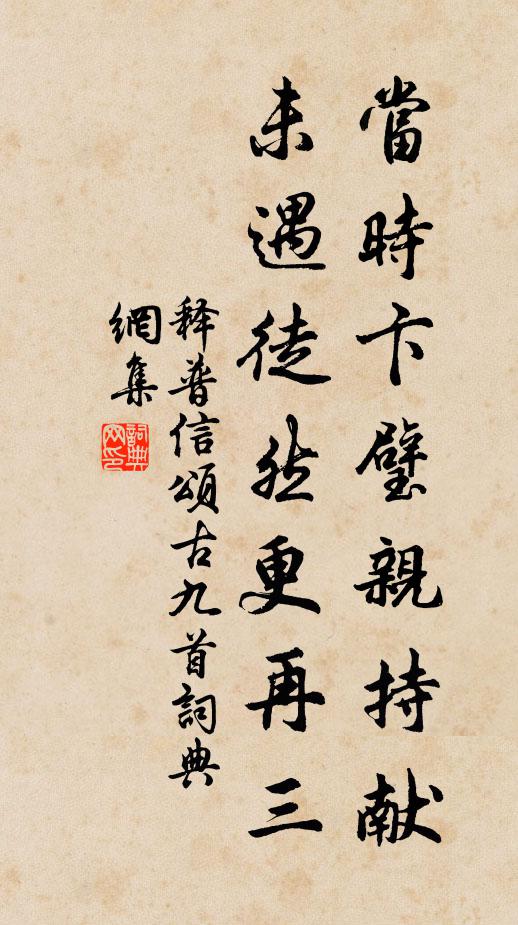 當時卞璧親持献
未遇徒然更再三
释普信頌古九首詞典
網集
詞典
网印